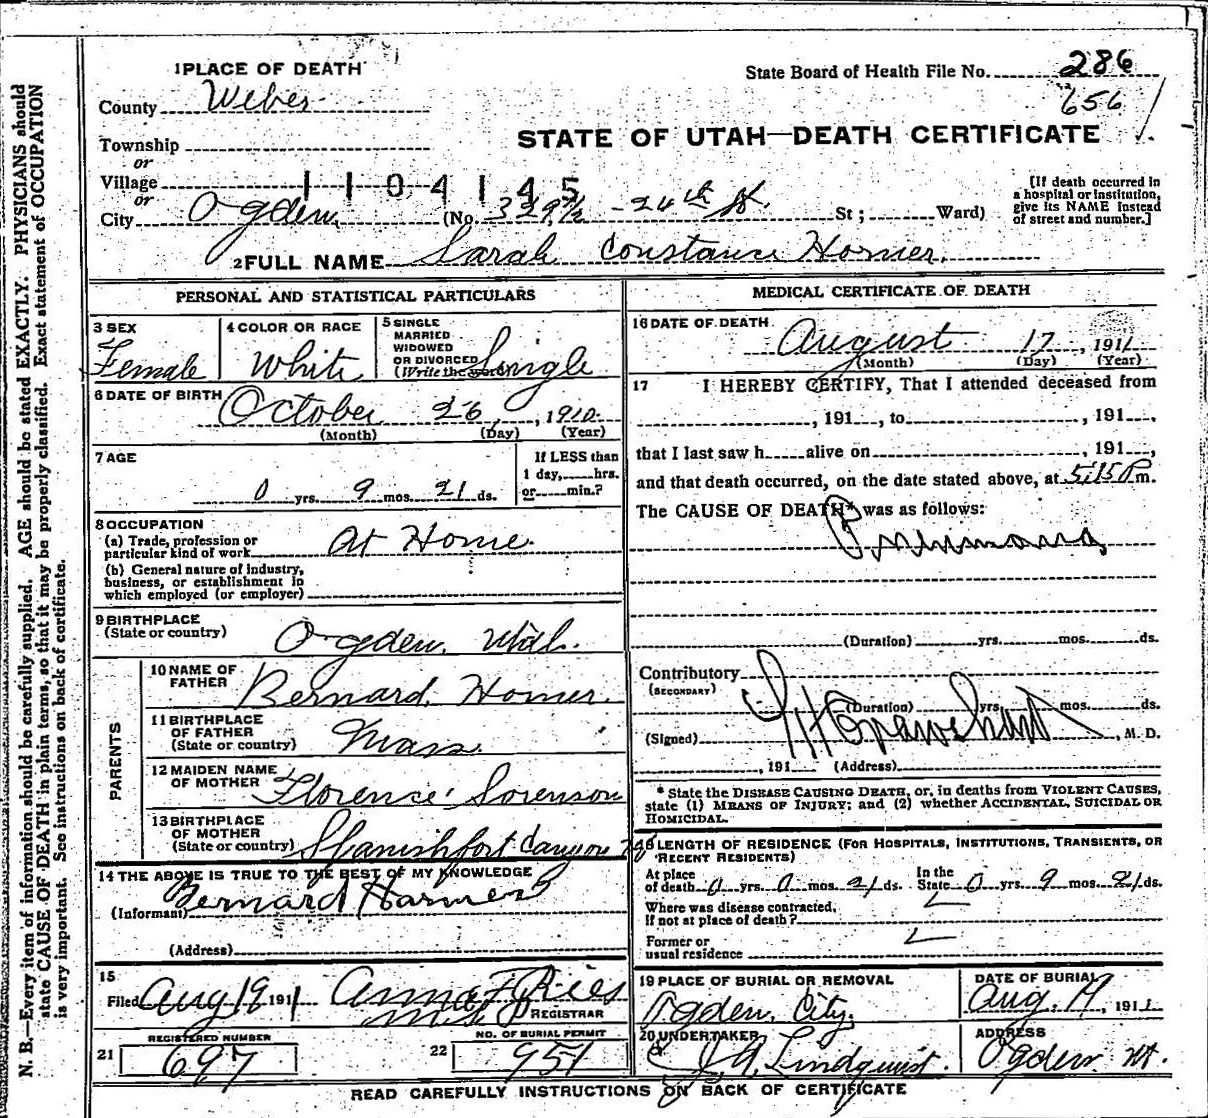 1 PLACE OF DEATH
State Board of Health File No. 286
County Weber
656
STATE OF UTAH—DEATH CERTIFICATE
Township
or
Village
1104145
or
City Ogden (No. 329½ - 24th St. St; Ward)
[If death occurred in a hospital or institution, give its NAME instead of street and number.]
2 FULL NAME Sarah Constance Horner.
PERSONAL AND STATISTICAL PARTICULARS
3 SEX
Female
4 COLOR OR RACE
White
5 SINGLE MARRIED WIDOWED OR DIVORCED (Write the word) Single
6 DATE OF BIRTH October 26, 1910
(Month) (Day) (Year)
7 AGE
0 yrs. 9 mos. 21 ds.
If LESS than 1 day, hrs. or min.?
8 OCCUPATION
(a) Trade, profession or particular kind of work At Home.
(b) General nature of industry, business, or establishment in which employed (or employer)
9 BIRTHPLACE
(State or country) Ogden, Utah.
PARENTS
10 NAME OF FATHER Bernard Horner.
11 BIRTHPLACE OF FATHER (State or country) Mass.
12 MAIDEN NAME OF MOTHER Florence Sorenson
13 BIRTHPLACE OF MOTHER (State or country) Spanishfort Canyon
14 THE ABOVE IS TRUE TO THE BEST OF MY KNOWLEDGE
(Informant) Bernard Harner
(Address)
15
Filed Aug 19 1911 Anna F Ries
REGISTRAR
REGISTERED NUMBER
21 697
NO. OF BURIAL PERMIT
22 951
MEDICAL CERTIFICATE OF DEATH
16 DATE OF DEATH
August 17, 1911
(Month) (Day) (Year)
17 I HEREBY CERTIFY, That I attended deceased from
, 191 , to , 191 ,
that I last saw h alive on , 191 ,
and that death occurred, on the date stated above, at 5:15 P m.
The CAUSE OF DEATH* was as follows:
Pneumonia
(Duration) yrs. mos. ds.
Contributory
(SECONDARY)
(Duration) yrs. mos. ds.
(Signed) , M. D.
, 191 (Address)
* State the DISEASE CAUSING DEATH, or, in deaths from VIOLENT CAUSES, state (1) MEANS OF INJURY; and (2) whether ACCIDENTAL, SUICIDAL OR HOMICIDAL.
LENGTH OF RESIDENCE (FOR HOSPITALS, INSTITUTIONS, TRANSIENTS, OR RECENT RESIDENTS)
At place of death 0 yrs. 0 mos. 21 ds. In the State 0 yrs. 9 mos. 21 ds.
Where was disease contracted, If not at place of death?
Former or usual residence
19 PLACE OF BURIAL OR REMOVAL
Ogden City.
DATE OF BURIAL
Aug. 19, 1911
20 UNDERTAKER
J. A. Lindquist.
ADDRESS
Ogden Ut.
READ CAREFULLY INSTRUCTIONS ON BACK OF CERTIFICATE
N. B.—Every item of information should be carefully supplied. AGE should be stated EXACTLY. PHYSICIANS should
state CAUSE OF DEATH in plain terms, so that it may be properly classified. Exact statement of OCCUPATION
is very important. See instructions on back of certificate.